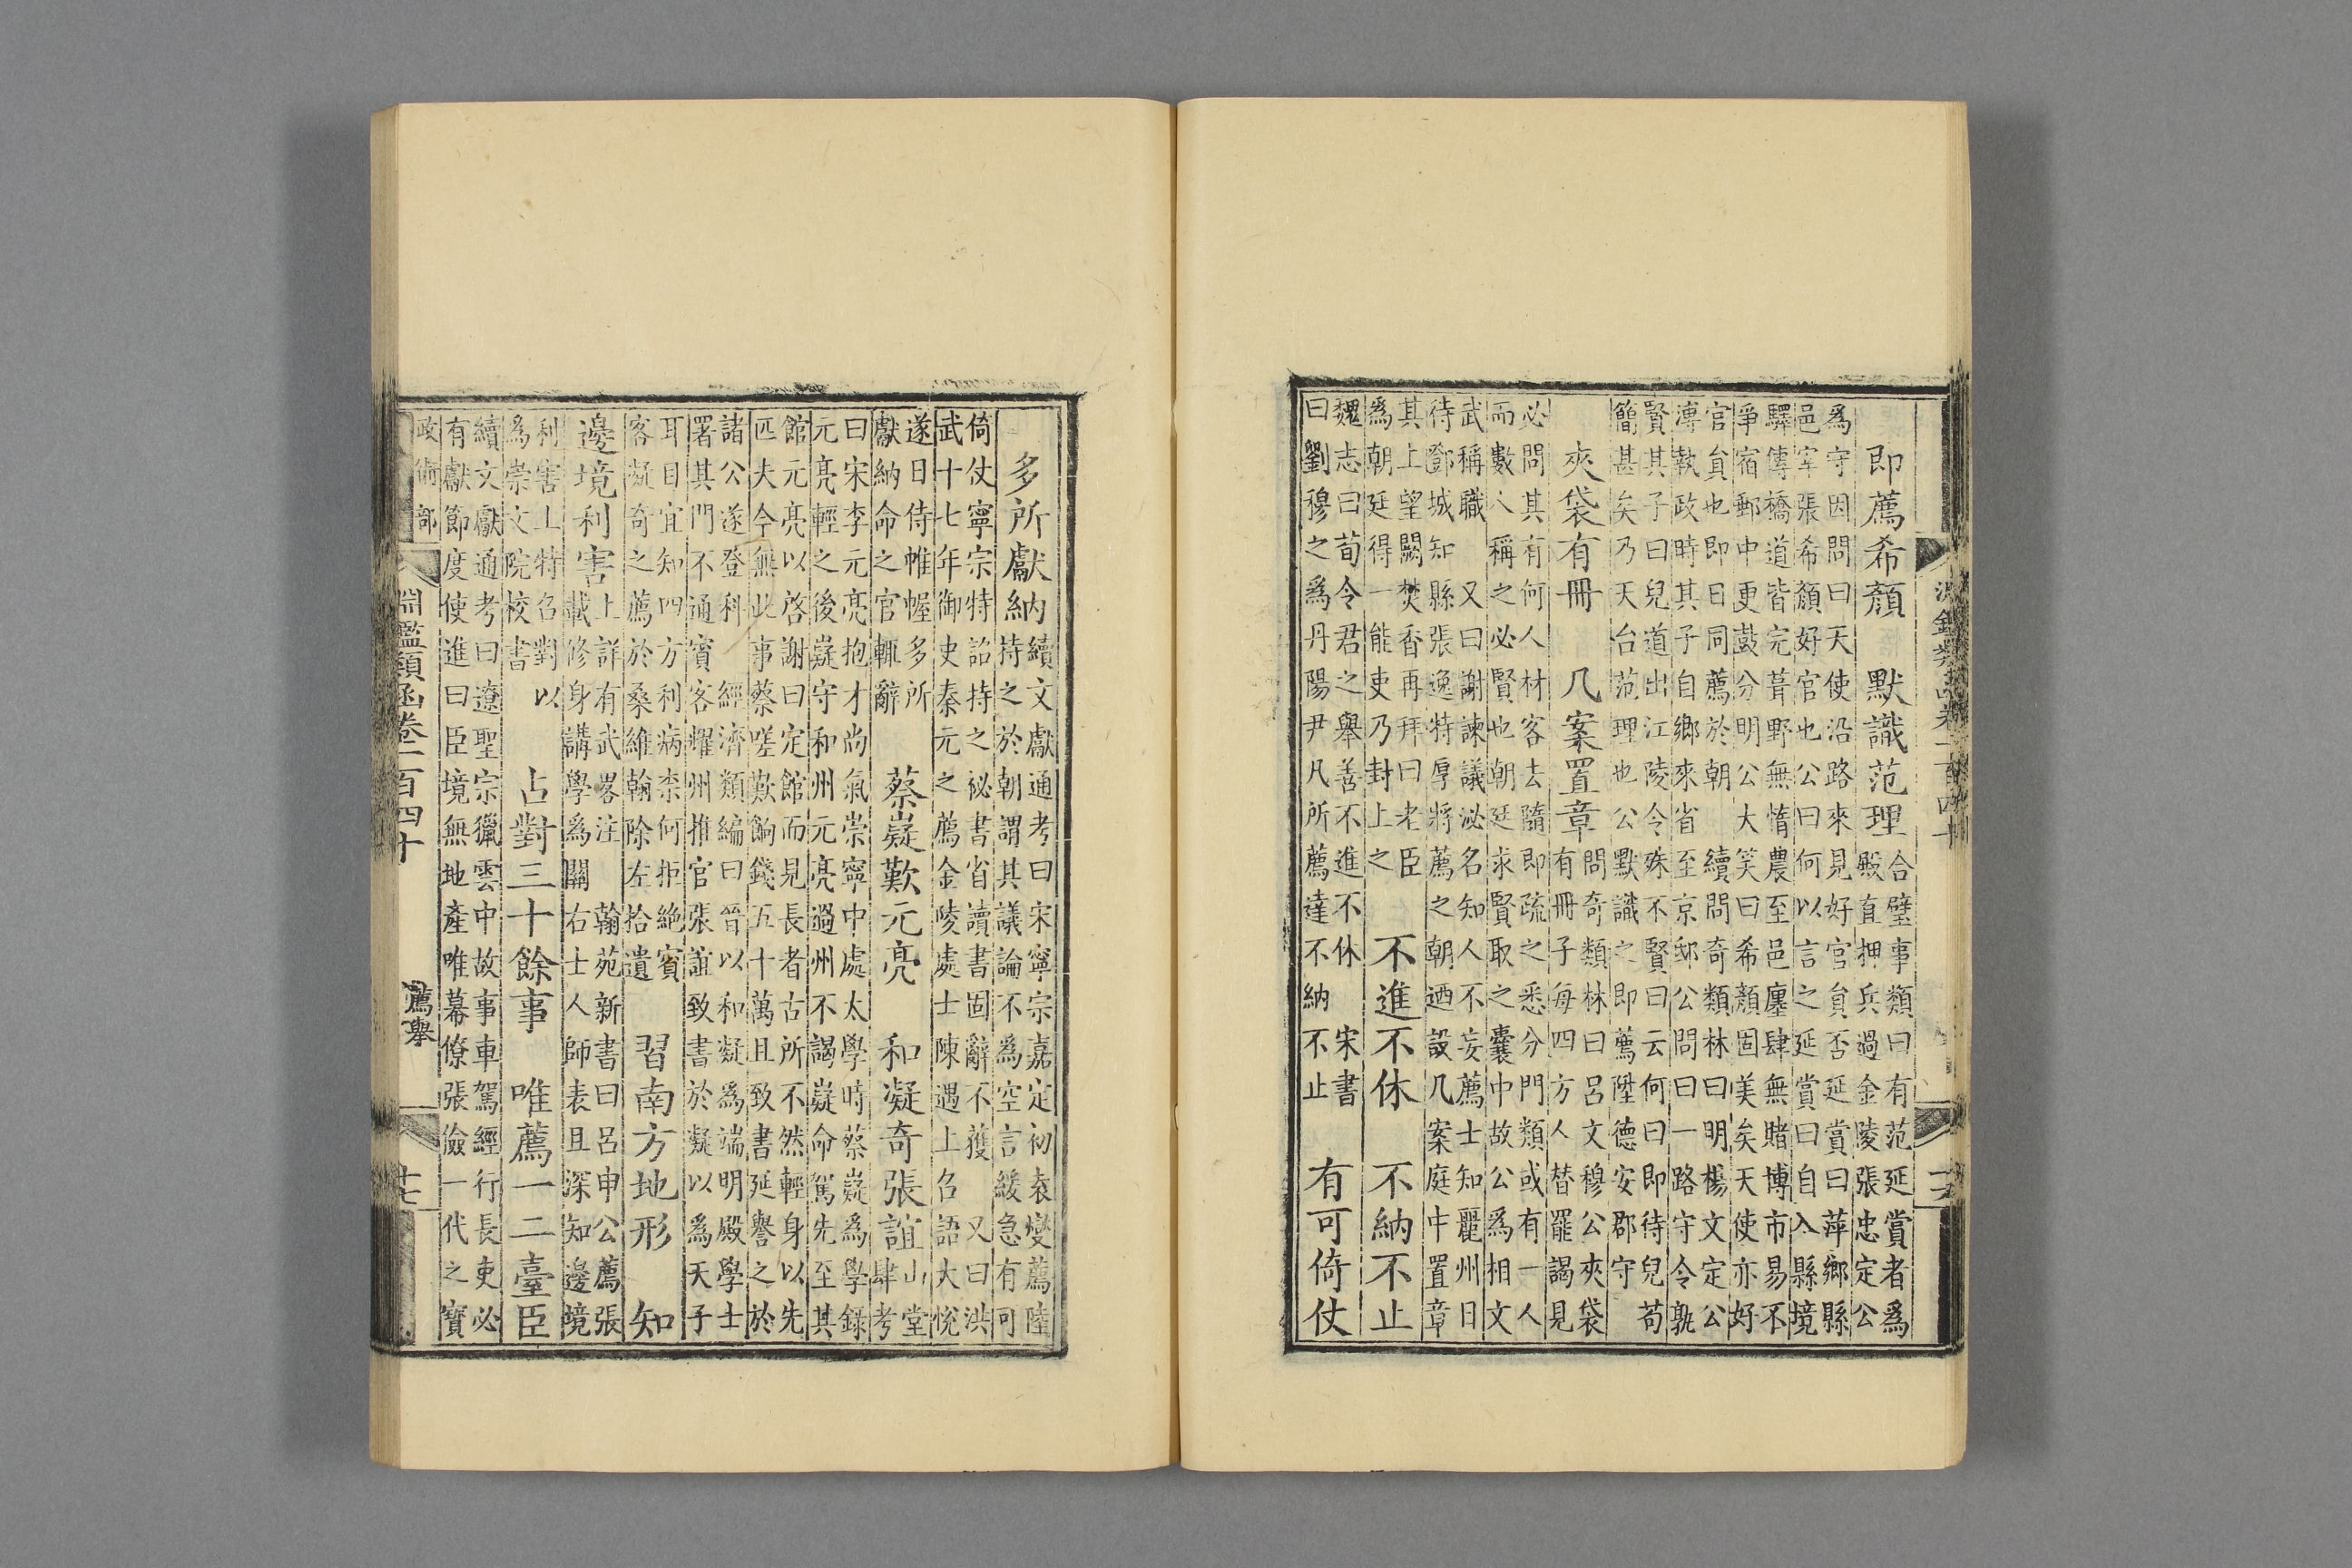 淵鑑類函卷一百四十
即薦希顏　默識范理
合璧事類曰有范延賞者爲
殿直押兵過金陵張忠定公
爲守因問曰天使沿路來見好官員否延賞曰萍鄉縣
邑宰張希顏好官也公曰何以言之延賞曰自入縣境
驛傳橋道皆完葺野無惰農至邑廛肆無賭博市易不
爭宿郵中更鼓分明公大笑曰希顏固美矣天使亦好
官員也即日同薦於朝　續問奇類林曰明楊文定公
溥執政時其子自鄉來省至京邸公問曰一路守令孰
賢其子曰兒道出江陵令殊不賢曰云何曰即待兒苟
簡甚矣乃天台范理也公默識之即薦陞德安郡守
夾袋有冊　几案置章
問奇類林曰呂文穆公夾袋
有冊子每四方人替罷謁見
必問其有何人材客去隨即疏之悉分門類或有一人
而數人稱之必賢也朝廷求賢取之囊中故公爲相文
武稱職　又曰謝諫議泌名知人不妄薦士知麗州日
待鄧城知縣張逸特厚將薦之朝迺設几案庭中置章
其上望闕焚香再拜曰老臣
爲朝廷得一能吏乃封上之
不進不休　不納不止
魏志曰荀令君之舉善不進不休　宋書
曰劉穆之爲丹陽尹凡所薦達不納不止
有可倚仗
多所獻納
續文獻通考曰宋寧宗嘉定初袁燮薦陸
持之於朝謂其議論不爲空言緩急有可
倚仗寧宗特詔持之祕書省讀書固辭不獲　又曰洪
武十七年御史秦元之薦金陵處士陳遇上召語大悅
遂日侍帷幄多所
獻納命之官輒辭
蔡嶷歎元亮　和凝奇張誼
山堂
肆考
曰宋李元亮抱才尚氣崇寧中處太學時蔡嶷爲學錄
元亮輕之後嶷守和州元亮過州不謁嶷命駕先至其
館元亮以啓謝曰定館而見長者古所不然輕身以先
匹夫今無此事蔡嗟歎餉錢五十萬且致書延譽之於
諸公遂登科　經濟類編曰晉以和凝爲端明殿學士
署其門不通賓客耀州推官張誼致書於凝以爲天子
耳目宜知四方利病柰何拒絶賓
客凝奇之薦於桑維翰除左拾遺
習南方地形　知
邊境利害
上詳有武畧注　翰苑新書曰呂申公薦張
載修身講學爲關右士人師表且深知邊境
利害上特召對　以
爲崇文院校書
占對三十餘事　唯薦一二臺臣
續文獻通考曰遼聖宗獵雲中故事車駕經行長吏必
有獻節度使進曰臣境無地產唯幕僚張儉一代之寶
政術部
淵鑑類函卷一百四十
薦舉
十七